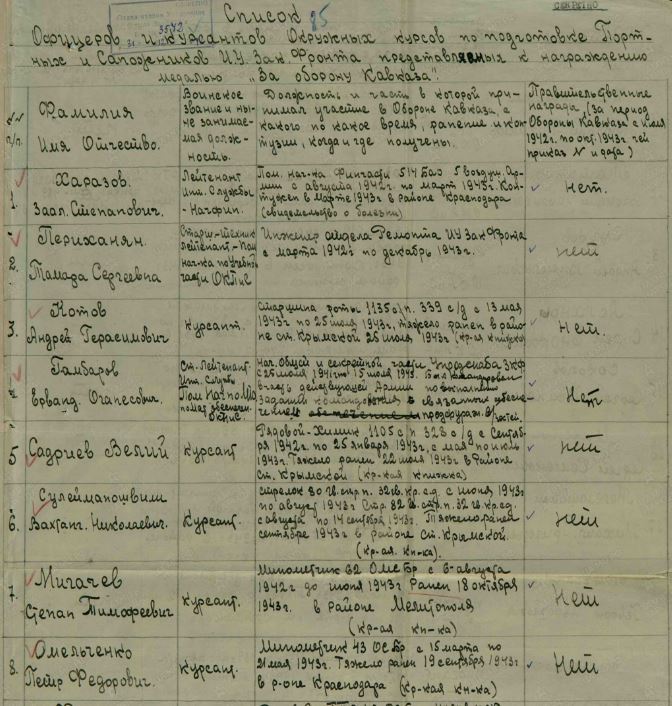 СЕКРЕТНО
3542
Список
Офицеров и курсантов Окружных курсов по подготовке Порт-
ных и Сапожников И.У. Зак. Фронта, представляемых к награждению
медалью „За оборону Кавказа".
№№ п/п.
Фамилия
Имя Отчество.
Воинское
звание и ны-
не занимае-
мая долж-
ность.
Должность и часть в которой при-
нимал участие в Обороне Кавказа, с
какого по какое время, ранение и кон-
тузии, когда и где получены.
Правительственные
награда, (за период
Обороны Кавказа с июля
1942г. по окт. 1943г. чей
приказ № и дата)
1.
Харазов.
Заал. Степанович.
Лейтенант
Инт. Службы
- Начфин.
Пом. нач-ка Финчасти 514 Бао 5 воздуш. Ар-
мии с августа 1942г. по март 1943г. Кон-
тужен в марте 1943г. в районе Краснодара
(свидетельство о болезни)
нет.
2.
Периханян.
Тамада Сергеевна
Старш-техник
лейтенант.- Пом
нач-ка по учебной
части ОКПиС
Инженер отдела Ремонта ИУ Зак Фронта
с марта 1942г по декабрь 1943г.
нет
3.
Котов
Андрей Герасимович
Курсант.
Старшина роты 1135 с/п. 339 с/д с 13 мая
1943г по 25 июля 1943г, тяжело ранен в райо-
не ст. Крымской 25 июля 1943г (кр-ая книжка)
Нет.
Гамбаров
Ерванд. Оганесович.
Ст. Лейтенант
Инт. службы
Нач. Общей и секретной части
по выполнению
заданий командования
Нет
5
Садриев Велий
Курсант
Рядовой-Химик 1105 с/п 328 с/д с Сентяб-
ря 1942г. по 25 января 1943г, с мая по июль
1943г. Тяжело ранен 22 июля 1943г в Районе
ст. Крымской (кр-кая книжка)
нет
6.
Сулейманошвили
Вахтанг. Николаевич.
Курсант.
Стрелок 80 гв. стр. п. 32 гв. кр. с.д. с июня 1943г
по август 1943г Стр. 82 гв. стр. п. 32 гв. кр. сд
с августа по 14 сентября 1943г. Тяжело ранен
сентябре 1943г в районе Ст. Крымской.
(кр-ая. кн-ка).
нет
7.
Мигачев
Степан Тимофеевич
Курсант.
Минометчик 62 Омсбр с 6-августа
1942г до июня 1943г Ранен 18 октября
1943г. в Районе Мелитополя
(кр-ая кн-ка)
Нет
8.
Омельченко
Петр Федорович.
Курсант.
Минометчик 43 ОСбр с 15 марта по
21 мая 1943г. Тяжело ранен 19 сентября 1943г
в р-оне Краснодара (кр-кая кн-ка)
Нет